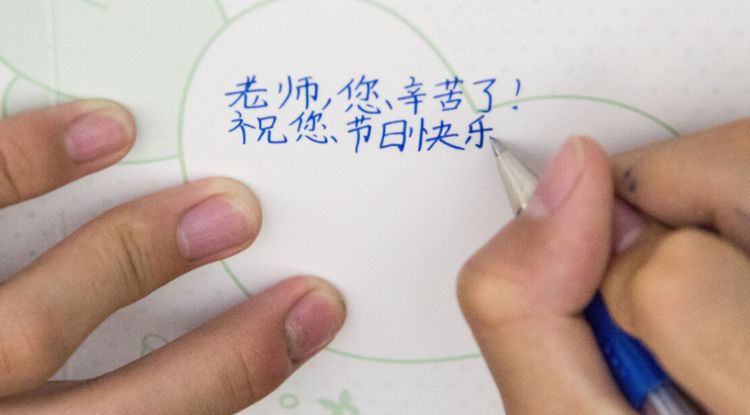 老师,您辛苦了!
祝您节日快乐